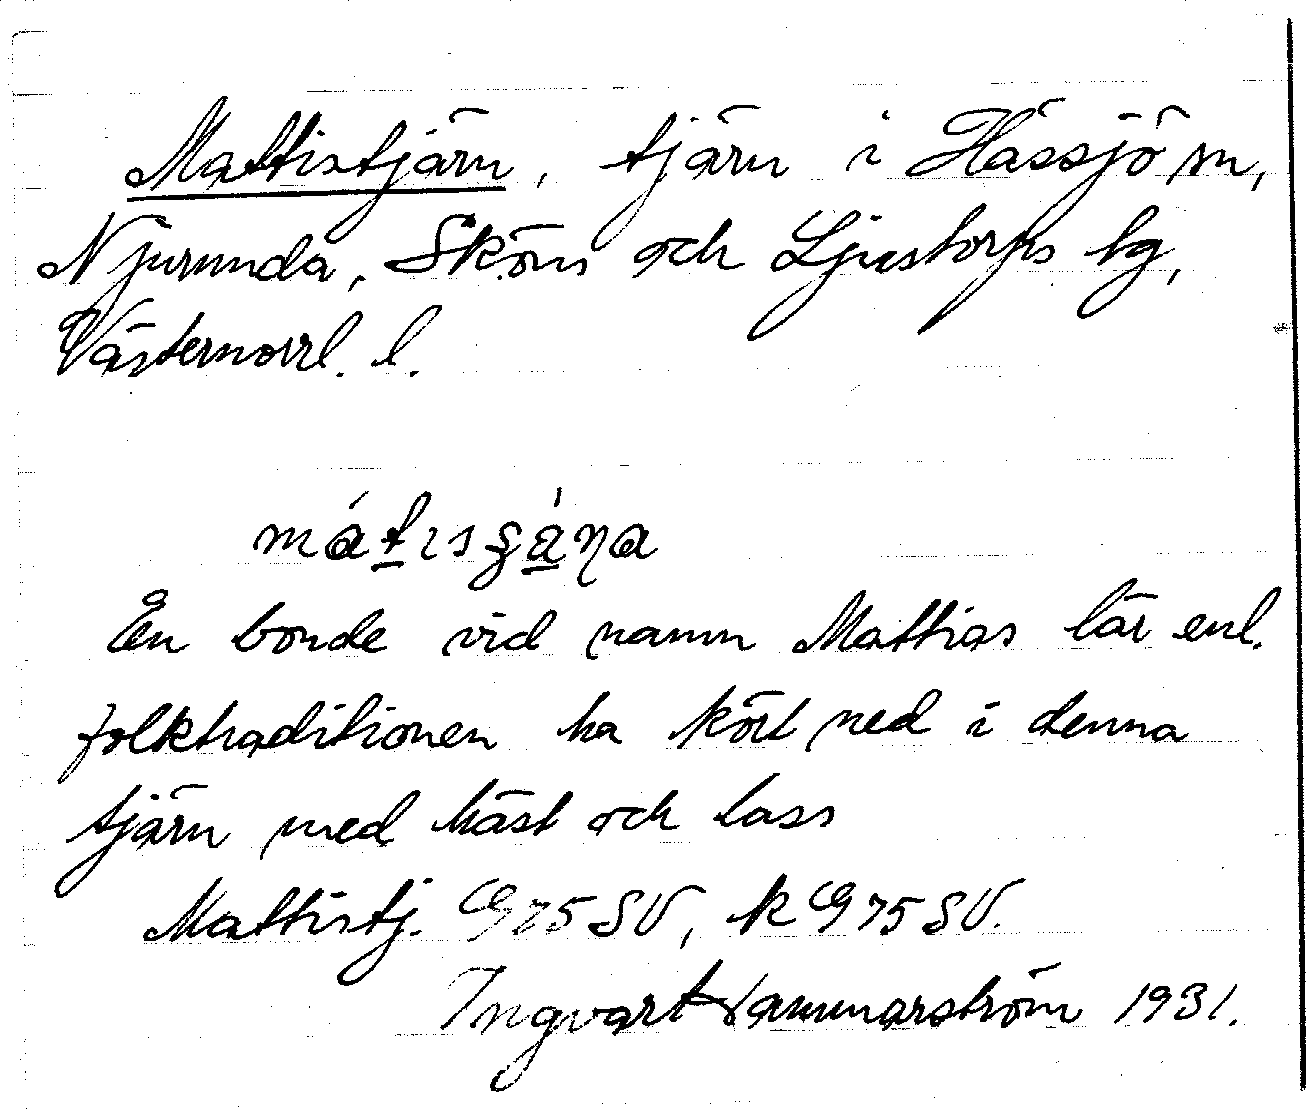 Mattistjärn, tjärn i Hässjö sn,
Njurunda, Sköns och Ljustorps tg,
Västernorrl. l.
En bonde vid namn Mattias lär enl.
folktraditionen ha kört ned i denna
tjärn med häst och lass
Mattistj. G 75 SV, k G 75 SV.
Ingvart Hammarström 1931.